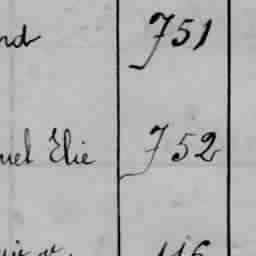 nd 751
uel Elie 752